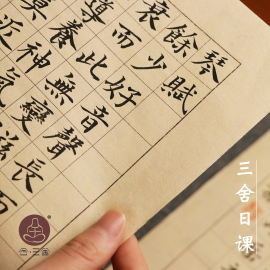 琴賦
餘少好音聲長而
衰而此無變滋
導養神氣
莫近
三舍日课